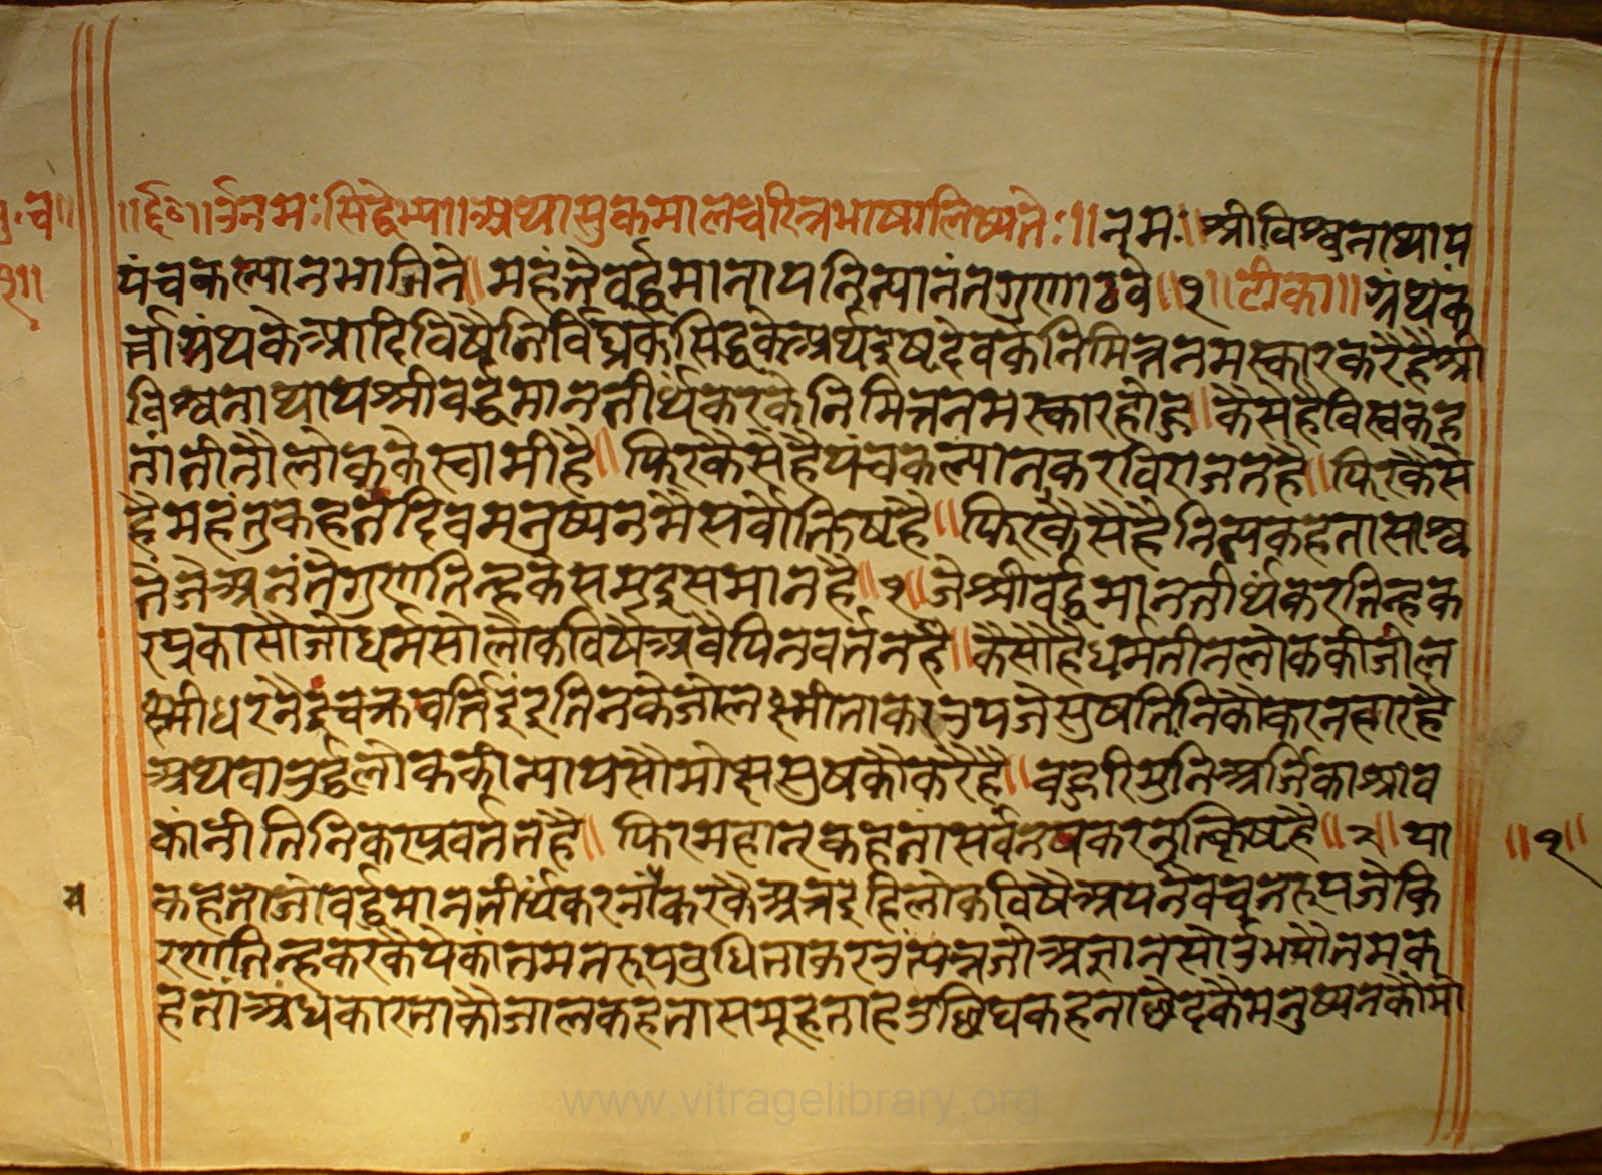 सु.च॥
१॥
॥र्द०॥उंनमःसिद्धेभ्यः॥अथासुकमालचरित्रभाषालिष्यते:॥नमः॥श्रीविश्वनाथाय
पंचकल्यानभागिने॥महंतेवर्द्धमानायनित्यानंतगुणार्णवे॥१॥टीका॥ग्रंथक
र्त्ताग्रंथकेआदिविषैनिर्विघ्नकसिद्धकेअर्थइष्टदेवकेनिमित्तनमस्कारकरैहैश्री
विश्वनाथायश्रीवर्द्धमानतीर्थंकरकेनिमित्तनमस्कारहोहु॥कैसेहैविस्वकह
तांतीनौलोककेस्वामीहै॥फिरकैसेहैपंचकल्यानकरविराजतहै॥फिरकैसे
हैमहंतुकहतेदेवमनुष्यनमैसर्वोत्कृिष्टहै॥फिरकैसेहैनित्यकहतासाश्व
तेजेअनंतेगुणतिन्हकेसमुद्रसमानहै॥१॥जेश्रीवर्द्धमानतीर्थंकरतिन्हक
रप्रकासौजोधर्मसोलोकविषैअवैपिनवर्ततहै॥कैसौहैधर्मतीनलोककीजोल
क्ष्मीधरनेंद्रचक्रवर्त्तिइंद्रतिनकेजोलक्ष्मीताकरउपजेसुषतिनिकौकरनहारहै
अथवाउर्द्धलोककीन्यायसौमोक्षसुषकौकरैहै॥बहुरिमुनिअर्जिकाश्राव
कांनीतिनिकरप्रवर्ततहै॥फिरमहानकहतांसर्वनषकरउत्किृष्टहै॥२॥या
कहताजोवर्द्धमानतीर्थंकरनौंकरकैअत्रइहिलोकविषैअपनेवचनरूपजेकि
रणतिन्हकरकेयेकांतमनरूपबुधिताकरउत्पन्नजोअज्ञानसोउंभयौतमक
हतांअंधकारताकौजालकहतासमूहताहउछिघकहनाछेदकैमनुष्यनकौमो
॥१॥